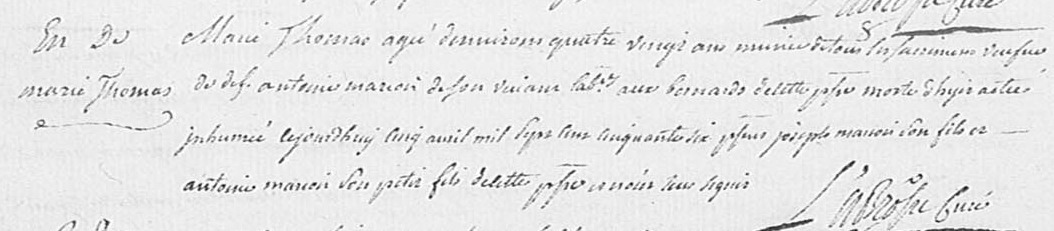 En. De Marie Thomas agé denvirons quatre vingt ans munie de tous les sacremens veufve
marie Thomas de def. antoine marion de son vivant lab.r aux bernards de cette p.sse morte d'hyer a été
inhumée ce jourdhuy cinq avril mil sept cent cinquante six p.sens joseph marion son fils et
antoine marion son petit fils de cette p.sse enquis signer
L'abrosse Curé